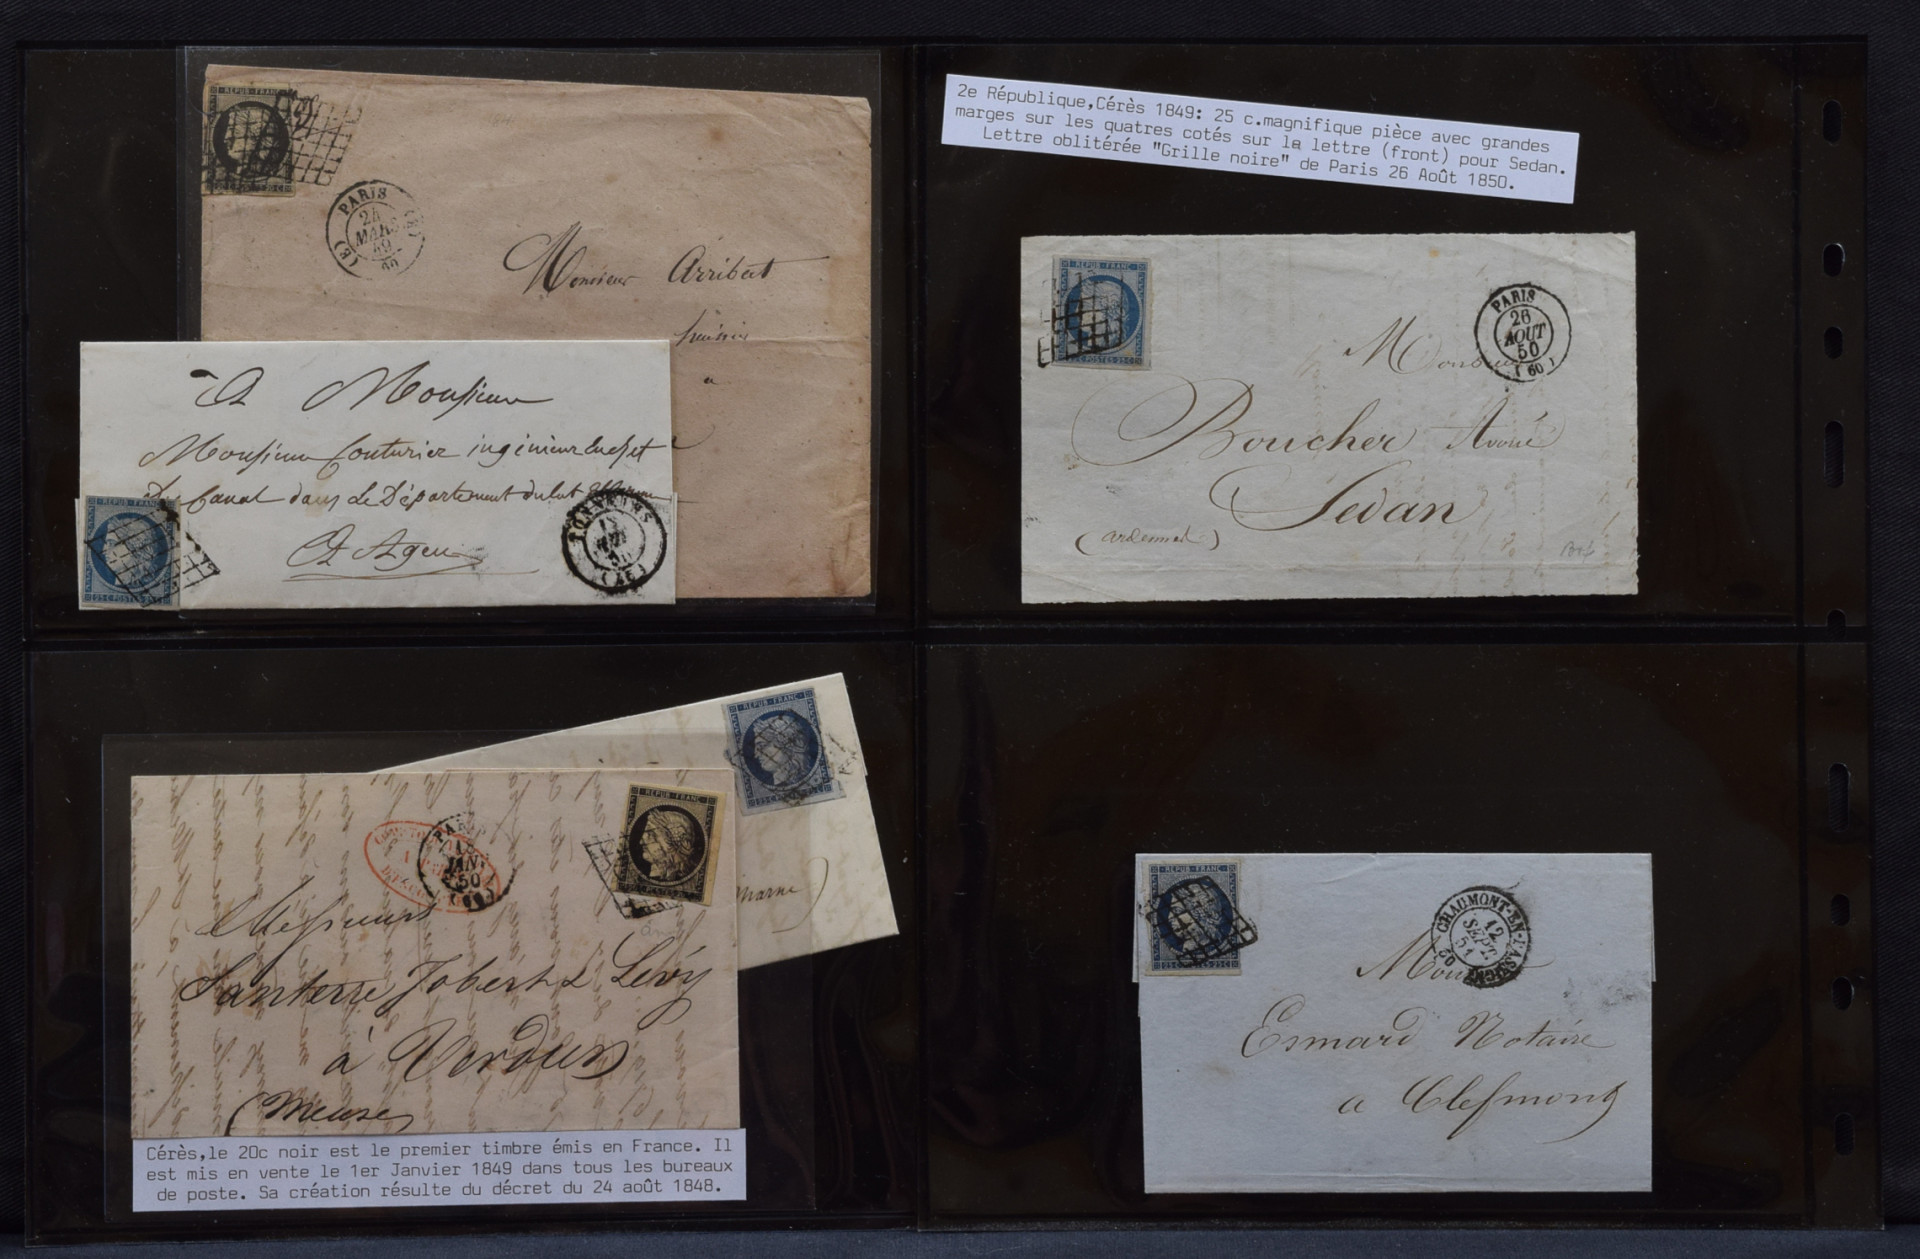 REPUB. FRANC.
PARIS
24
MARS
49
60
Monsieur Arribert
a
A Monsieur
Monsieur Couturier ingénieur en chef
Du Canal dans Le Département du Lot et Garonne
A Agen
REPUB. FRANC.
25 C POSTES 25 C
TONNEINS
(45)
2e République,Cérès 1849: 25 c.magnifique pièce avec grandes
marges sur les quatres cotés sur la lettre (front) pour Sedan.
Lettre oblitérée "Grille noire" de Paris 26 Août 1850.
REPUB. FRANC.
25 C POSTES 25 C
PARIS
26
AOUT
50
(60)
Monsieur
Boucher Avoué
Sedan
(ardennes)
REPUB. FRANC.
marne)
REPUB. FRANC.
PARIS
JANV
50
(60)
Messieurs
Santerre Jobert & Lévy
à Verdun
(Meuse
Cérès,le 20c noir est le premier timbre émis en France. Il
est mis en vente le 1er Janvier 1849 dans tous les bureaux
de poste. Sa création résulte du décret du 24 août 1848.
REPUB. FRANC.
25 C POSTES 25 C
CHAUMONT-EN-BASSIGNY
12
SEPT.
51
Monsieur
Esmard Notaire
a Clefmont